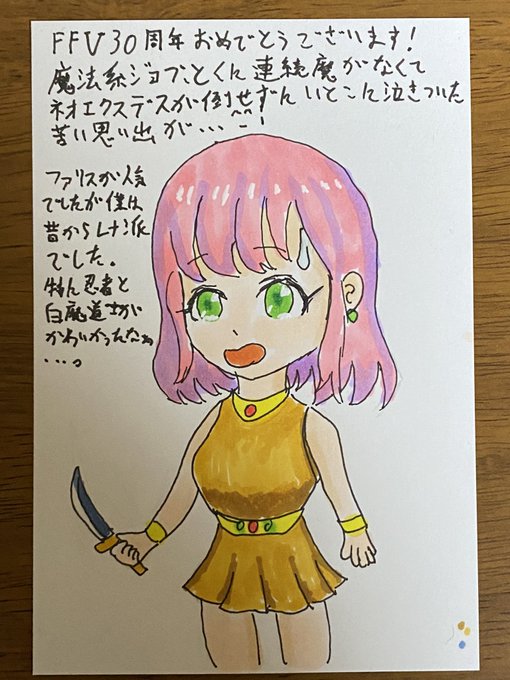 FFV30周年おめでとうございます!
魔法系ジョブ、とくに連続魔がなくて
ネオエクスデスが倒せずいとこに泣きついた
苦い思い出が...^^;
ファリスが人気
でしたが僕は
昔からレナ派
でした。
特に忍者と
白魔道士が
かわいかったなぁ
...。